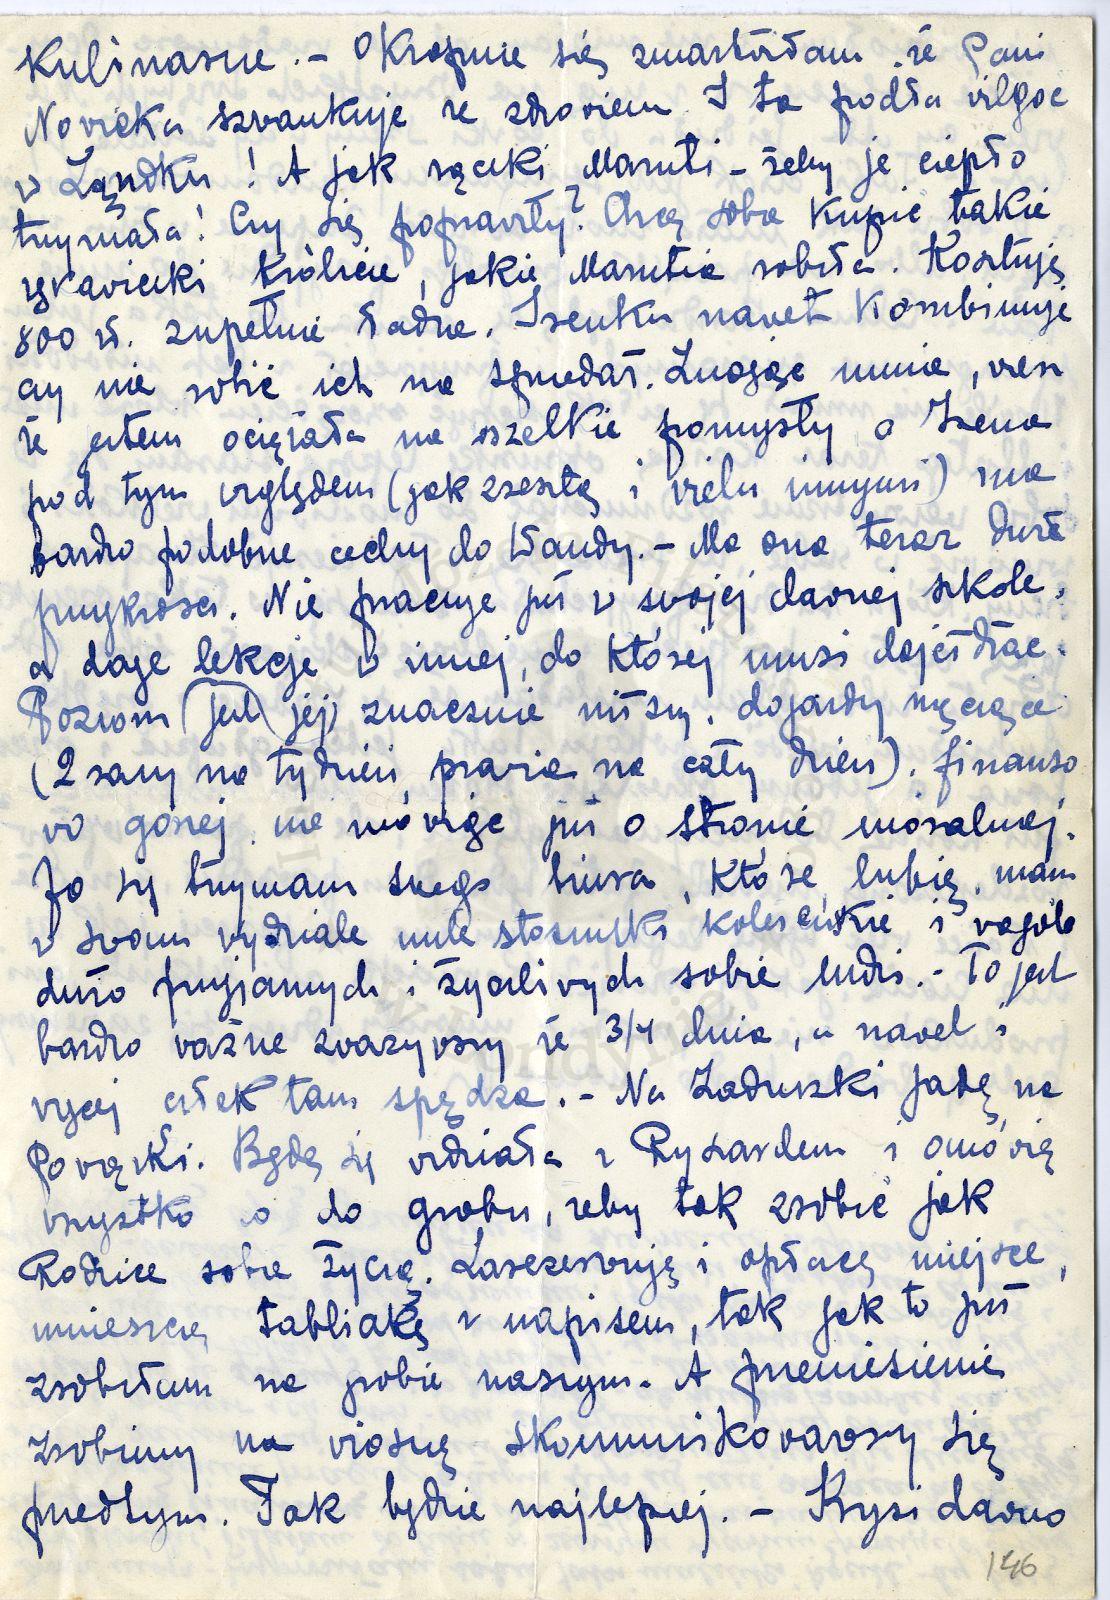 Kulinarne. - Okropnie się zmartwiłam, że Pani
Nowicka szwankuje ze zdrowiem. I ta podła wilgoć
w Lądku! A jak rączki Maruti - żeby je ciepło
trzymała! Czy się poprawiły? Chcę sobie kupić takie
rękawiczki królicze, jakie Marutia robiła. Kosztują
800 zł. zupełnie ładne. Irenka nawet kombinuje
czy nie robić ich na sprzedaż. Znając mnie, wiesz
że jestem ociężała na wszelkie pomysły, a Irena
pod tym względem (jak zresztą i wielu innymi) ma
bardzo podobne cechy do Wandy. - Ma ona teraz duże
przykrości. Nie pracuje już w swojej dawnej szkole,
a daje lekcje w innej, do której musi dojeżdżać.
Poziom jest jej znacznie niższy, dojazdy męczące
(2 razy na tydzień, prawie na cały dzień). finanso
wo gorzej, nie mówiąc już o stronie moralnej.
Ja się trzymam swego biura, które lubię, mam
w swoim wydziale miłe stosunki koleżeńskie i wogóle
dużo przyjaznych i życzliwych sobie ludzi. - To jest
bardzo ważne zważywszy że 3/4 dnia, a nawet i
więcej człek tam spędza. - Na Zaduszki jadę na
Powązki. Będę się widziała z Ryszardem i omówię
wszystko co do grobu, żeby tak zrobić jak
Rodzice sobie życzą. Zarezerwuję i opłacę miejsce,
umieszczę tabliczkę z napisem, tak jak to już
zrobiłam na grobie naszym. A przeniesienie
zrobimy na wiosnę skomunikowawszy się
przedtym. Tak będzie najlepiej. - Krysi dawno
146